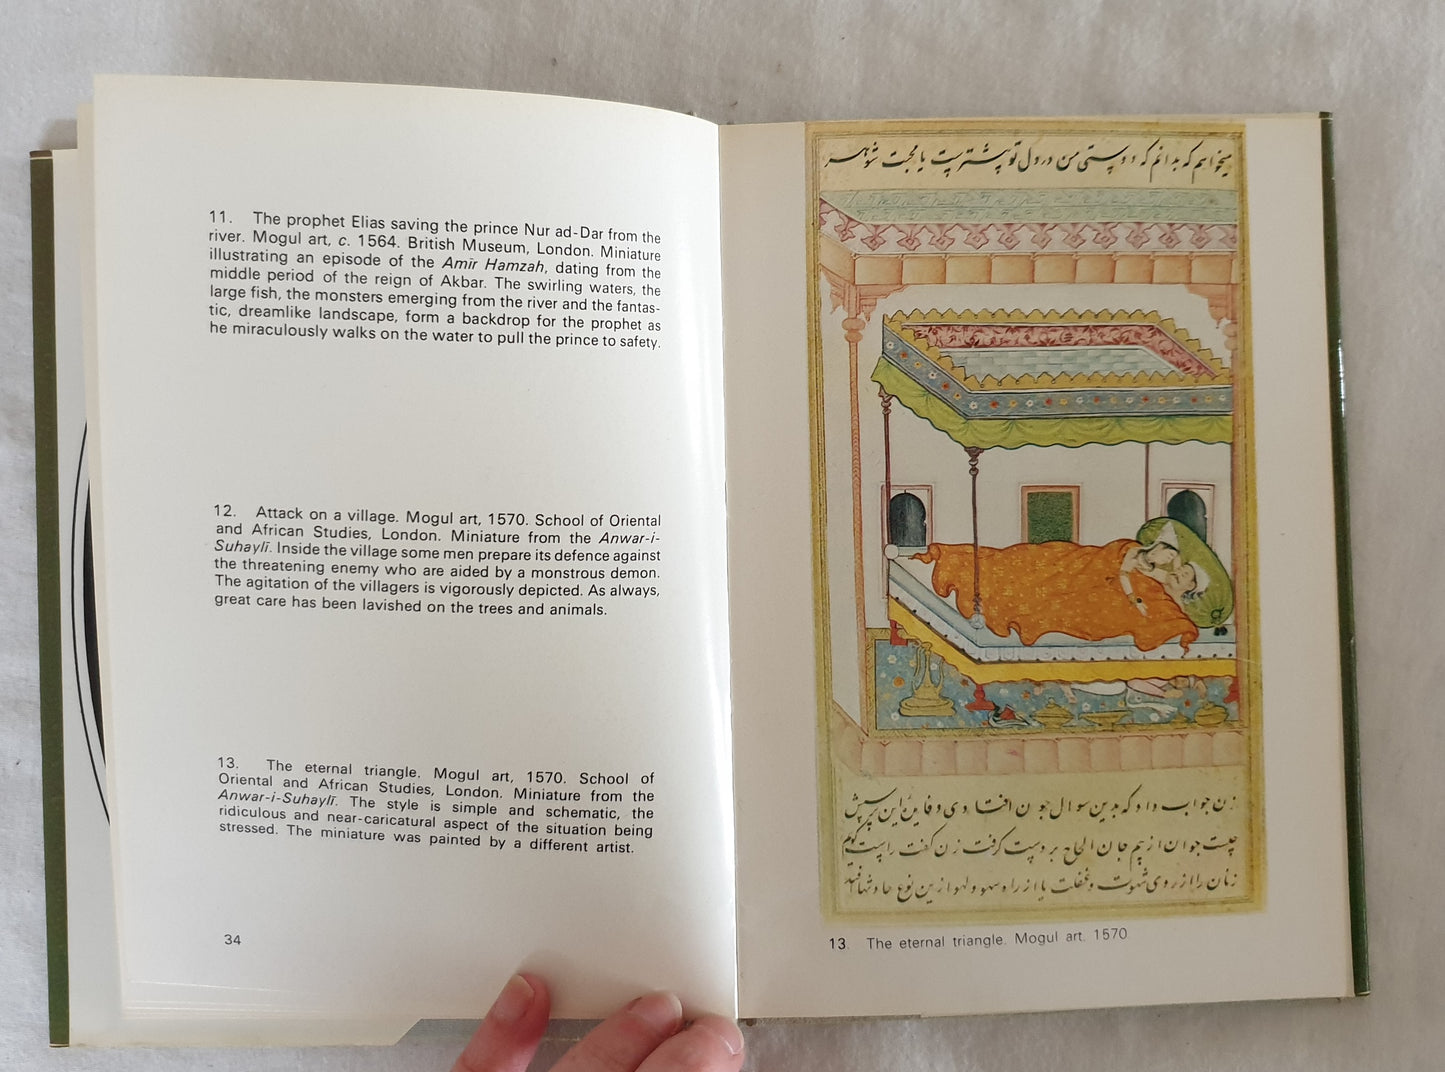 11. The prophet Elias saving the prince Nur ad-Dar from the
river. Mogul art, c. 1564. British Museum, London. Miniature
illustrating an episode of the Amīr Hamzah, dating from the
middle period of the reign of Akbar. The swirling waters, the
large fish, the monsters emerging from the river and the fantas-
tic, dreamlike landscape, form a backdrop for the prophet as
he miraculously walks on the water to pull the prince to safety.
12. Attack on a village. Mogul art, 1570. School of Oriental
and African Studies, London. Miniature from the Anwar-i-
Suhaylī. Inside the village some men prepare its defence against
the threatening enemy who are aided by a monstrous demon.
The agitation of the villagers is vigorously depicted. As always,
great care has been lavished on the trees and animals.
13. The eternal triangle. Mogul art, 1570. School of
Oriental and African Studies, London. Miniature from the
Anwar-i-Suhaylī. The style is simple and schematic, the
ridiculous and near-caricatural aspect of the situation being
stressed. The miniature was painted by a different artist.
34
میخواهم که بدانم که دوستی من در دل تو پیشتر است یا محبت شوهر
زن جواب داد که بدین سوال چون افتادی و فایده این پرسش
چیست جوان از بیم جان الحاح بر دست گرفت زن گفت راست گویم
زنان را از روی شهوت و غفلت یا از راه سهو و لهو ازین نوع حادثها افتد
13. The eternal triangle. Mogul art. 1570.